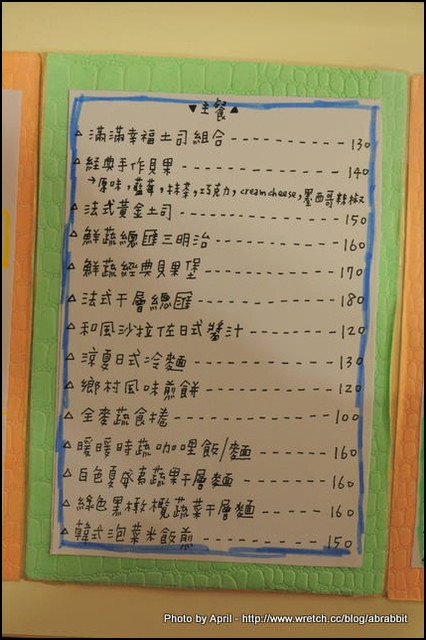 ▼主餐▲
△ 滿滿幸福土司組合 -------- 130
△ 經典手作貝果 -------- 140
→原味,藍莓,抹茶,巧克力,cream cheese,墨西哥辣椒
△ 法式黃金土司 -------- 150
△ 鮮蔬總匯三明治 -------- 160
△ 鮮蔬經典貝果堡 -------- 170
△ 法式千層總匯 -------- 180
△ 和風沙拉佐日式醬汁 -------- 120
△ 涼夏日式冷麵 -------- 130
△ 鄉村風味煎餅 -------- 120
△ 全麥蔬食捲 -------- 100
△ 暖暖時蔬咖哩飯/麵 -------- 160
△ 白色夏 蔬果千層麵 -------- 160
△ 綠色黑橄欖蔬菜千層麵 -------- 160
△ 韓式泡菜米飯煎 -------- 150
Photo by April - http://www.wretch.cc/blog/abrabbit